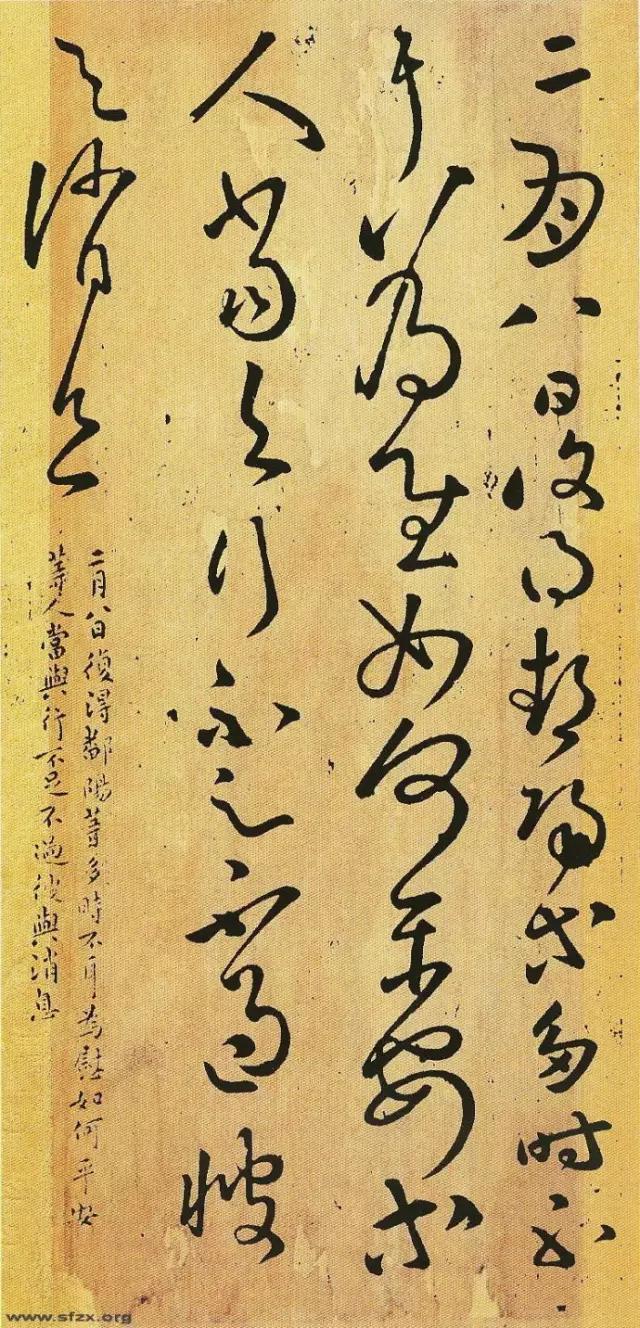 二月八日復得鄱陽等多時不
耳為慰如何平安等
人當與行不足不過彼
與消息
二月八日復得鄱陽等多時不耳為慰如何平安
等人當與行不足不過彼與消息
www.sfzx.org